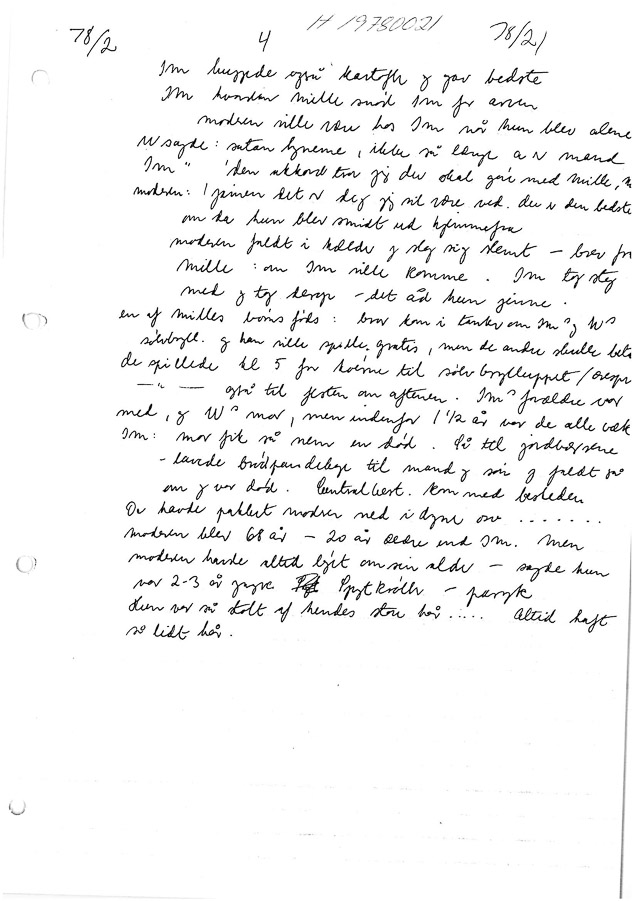 78/2 4 H 19780021 78/21
Im hyppede også kartofler y gav bedste
Im hvordan Mille snød Im for arven
moderen ville være hos Im når hun blev alene
W sagde: satan tyneme, ikke så længe a N mand
Im " den akkord tror jeg der skal gøre med Mille,
moderen: det N dig jeg vil være ved. der N den bedste
om da hun blev smidt ud hjemmefra
moderen faldt i kælder y slog sig slemt — brev fra
Mille: om Im ville komme. Im tog steg
med y tog derop — det åd hun gerne.
en af Milles børns føds: bror kom i tanker om Im's y W's
sølvbryll. y han ville spille gratis, men de andre skulle beta
de spillede kl 5 for køerne til sølvbrylluppet /
— " — også til festen om aftenen. Im's forældre var
med, y W's mor, men indenfor 1 1/2 år var de alle væk
Im: mor fik så nem en død. På til jordbærrene
- lavede brødpandekage til mand y søn y faldt så
om y var død. Central best. kom med beskeden
De havde pakket moderen ned i dyne osv .......
moderen blev 68 år — 20 år ældre end Im. Men
moderen havde altid løjet om sin alder — sagde hun
var 2-3 år yngre Spytkrøller — paryk
Hun var så stolt af hendes store hår ..... Altid haft
så lidt hår.